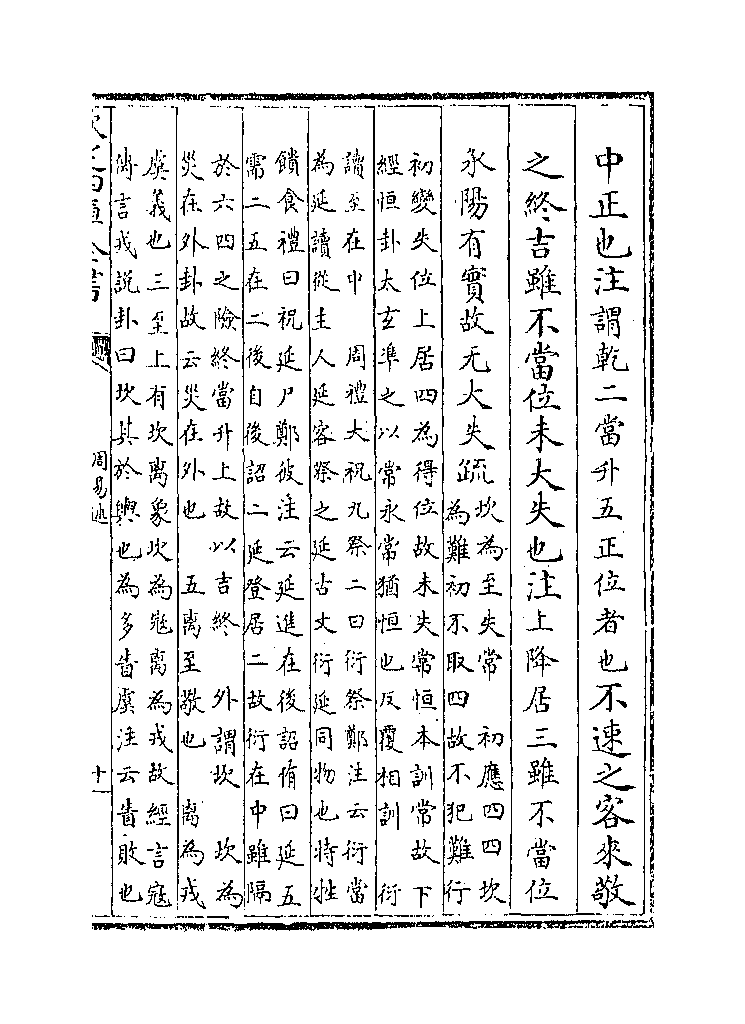 中正也注謂乾二當升五正位者也不速之客來敬
之終吉雖不當位未大失也注上降居三雖不當位
承陽有實故无大失疏坎為至失常　初應四四坎
為難初不取四故不犯難行
初變失位上居四為得位故未失常恒本訓常故下
經恒卦太玄準之以常永常猶恒也反覆相訓　衍
讀至在中　周禮大祝九祭二曰衍祭鄭注云衍當
為延讀從主人延客祭之延古文衍延同物也特牲
饋食禮曰祝延尸鄭彼注云延進在後詔侑曰延五
需二五在二後自後詔二延登居二故衍在中雖隔
於六四之險終當升上故以吉終　外謂坎　坎為
災在外卦故云災在外也　五離至敬也　離為戎
虞義也三至上有坎離象坎為冦離為戎故經言寇
傳言戎説卦曰坎其於輿也為多眚虞注云眚敗也
周易述
十一